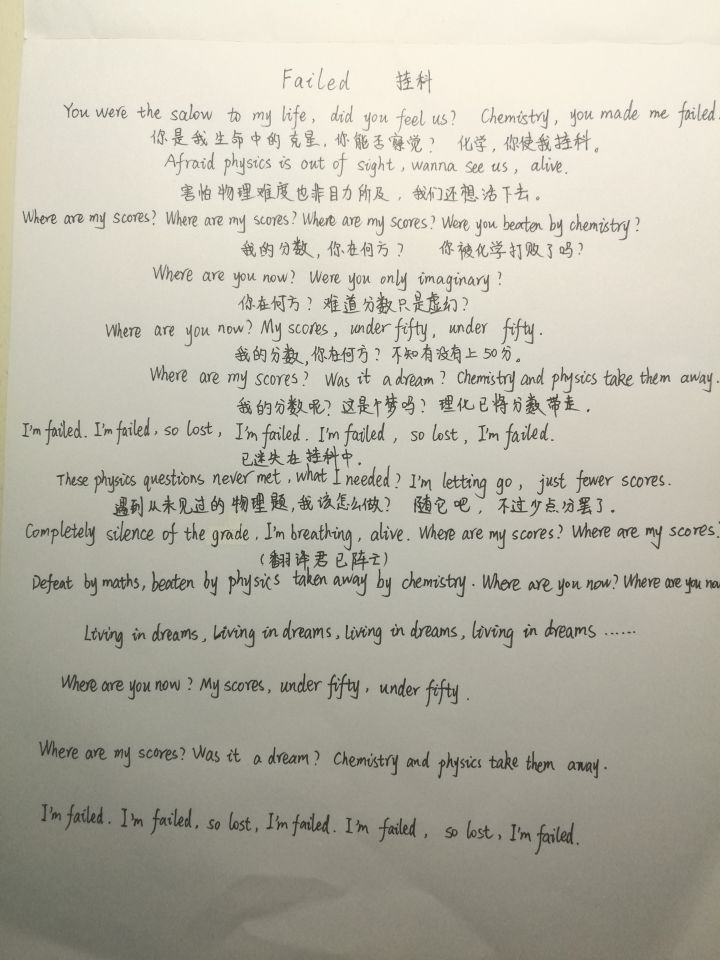 Failed 挂科
You were the salow to my life, did you feel us? Chemistry, you made me failed.
你是我生命中的克星,你能否察觉? 化学,你使我挂科。
Afraid physics is out of sight, wanna see us, alive.
害怕物理难度也非目力所及,我们还想活下去。
Where are my scores? Where are my scores? Where are my scores? Were you beaten by chemistry?
我的分数,你在何方? 你被化学打败了吗?
Where are you now? Were you only imaginary?
你在何方?难道分数只是虚幻?
Where are you now? My scores, under fifty, under fifty.
我的分数,你在何方?不知有没有上50分。
Where are my scores? Was it a dream? Chemistry and physics take them away.
我的分数呢?这是个梦吗?理化已将分数带走.
I'm failed. I'm failed, so lost, I'm failed. I'm failed, so lost, I'm failed.
已迷失在挂科中.
These physics questions never met, what I needed? I'm letting go, just fewer scores.
遇到从未见过的物理题,我该怎么做? 随它吧,不过少点分罢了。
Completely silence of the grade, I'm breathing, alive. Where are my scores? Where are my scores?
(翻译君已阵亡)
Defeat by maths, beaten by physics taken away by chemistry. Where are you now? Where are you now
Living in dreams, Living in dreams, living in dreams, living in dreams ......
Where are you now? My scores, under fifty, under fifty.
Where are my scores? Was it a dream? Chemistry and physics take them away.
I'm failed. I'm failed, so lost, I'm failed. I'm failed, so lost, I'm failed.